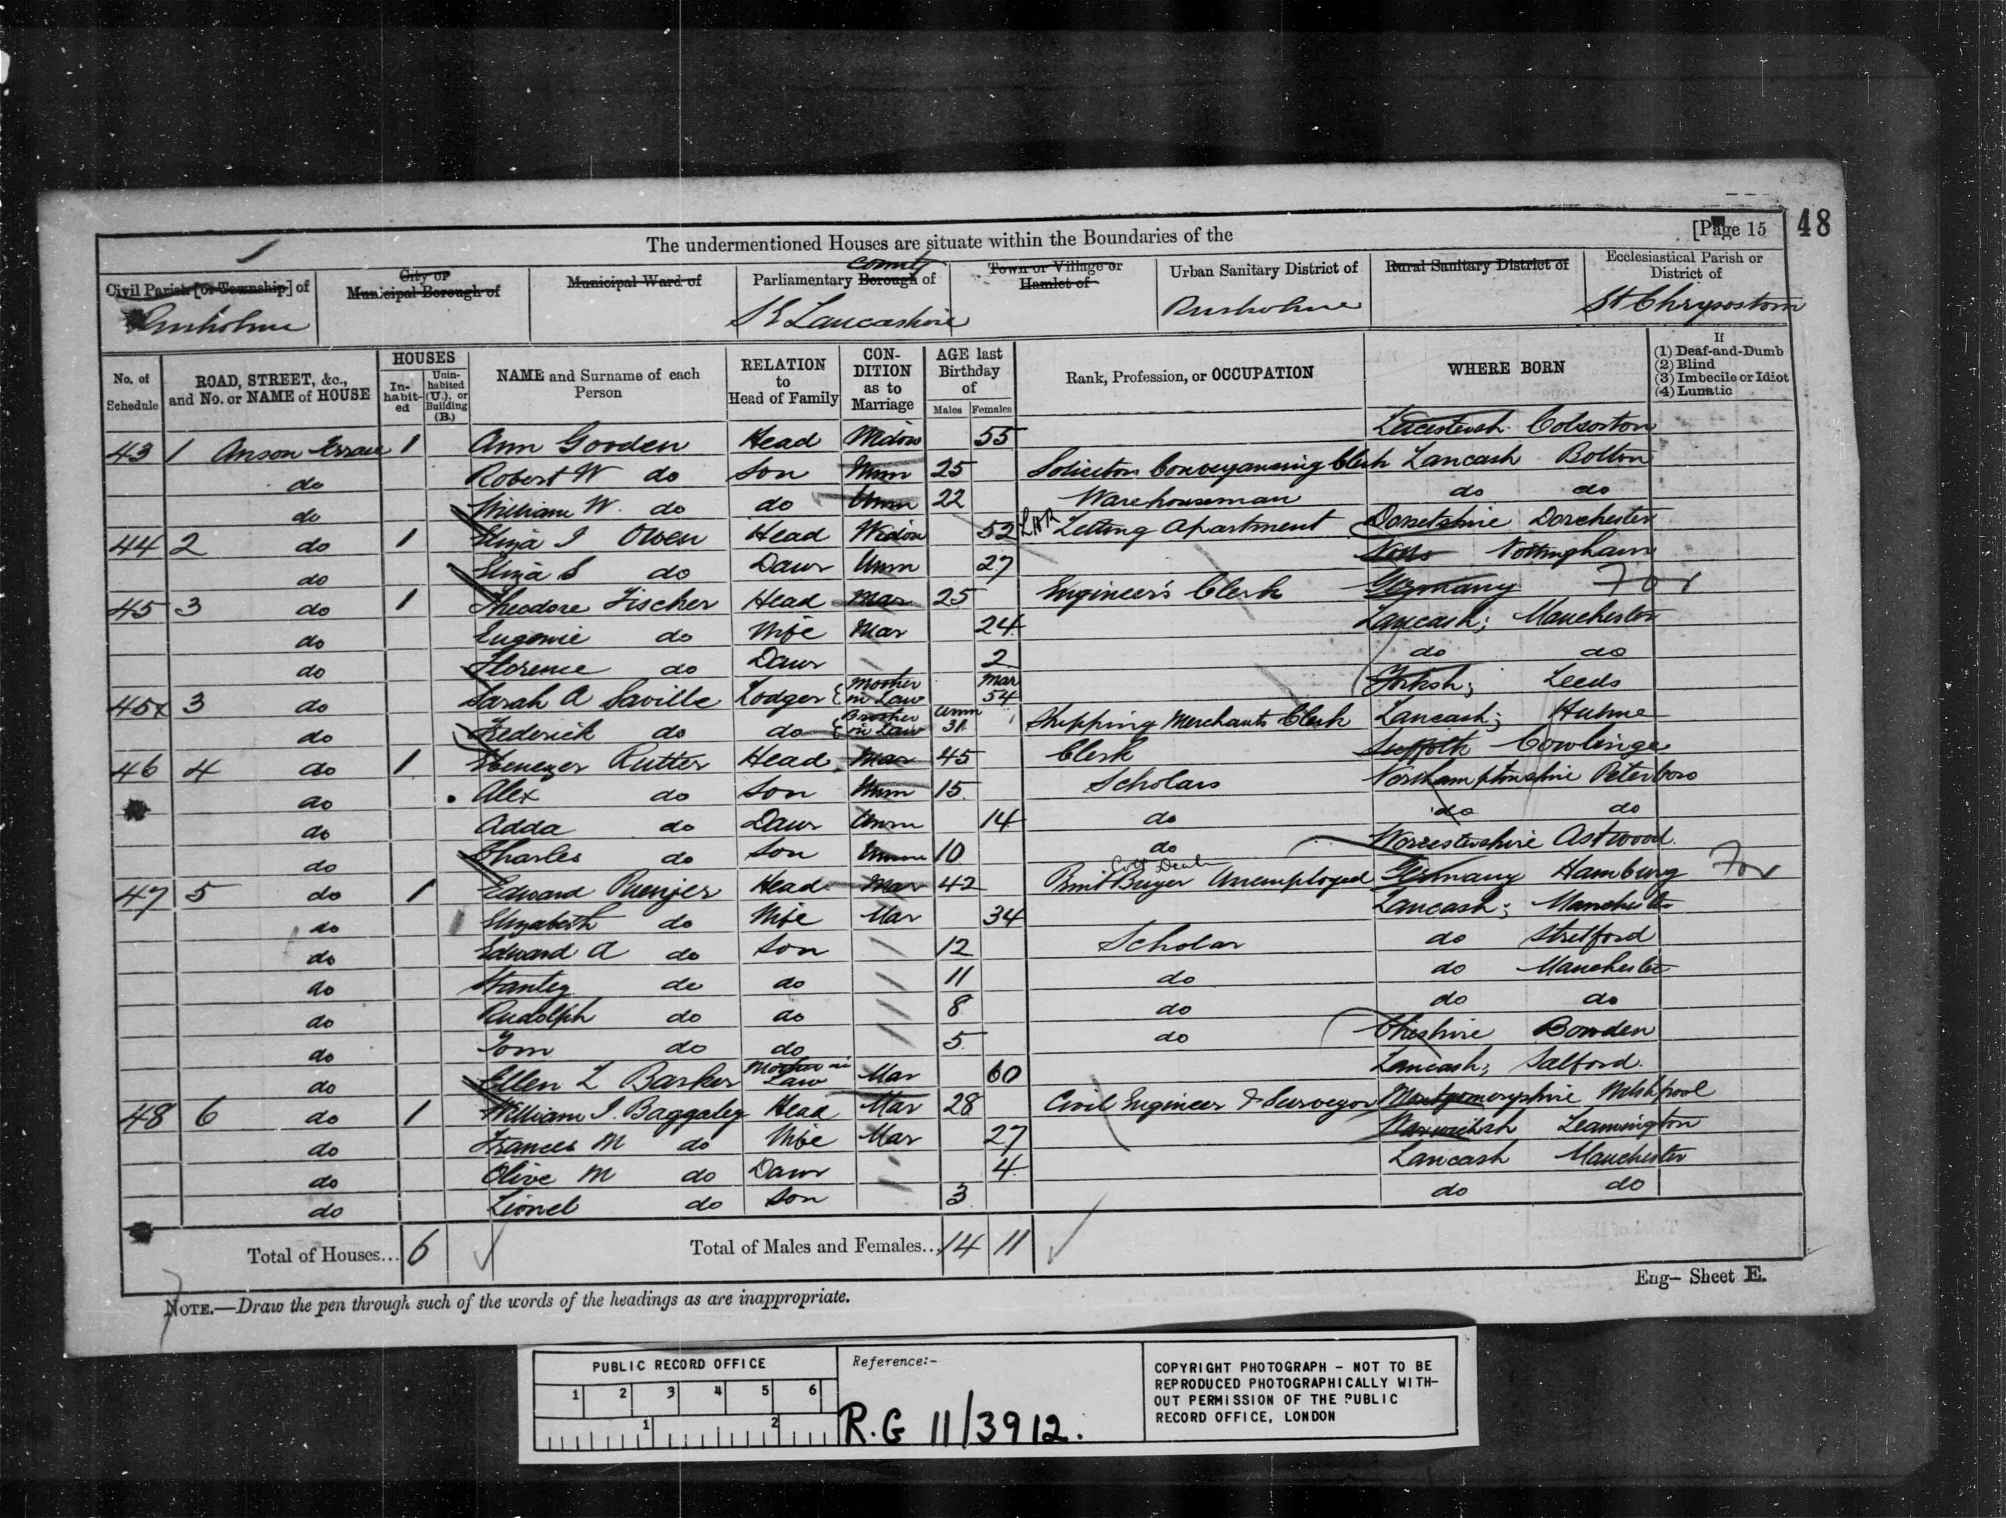 [Page 15
48
The undermentioned Houses are situate within the Boundaries of the
Civil Parish [or Township] of
City or Municipal Borough of
Municipal Ward of
Parliamentary Borough County of
Town or Village or Hamlet of
Urban Sanitary District of
Rural Sanitary District of
Ecclesiastical Parish or District of
Rusholme S E Lancashire Rusholme St Chrysostom
No. of Schedule
ROAD, STREET, &c., and No. or NAME of HOUSE
HOUSES
In-habit-ed
Unin-habited (U.), or Building (B.)
NAME and Surname of each Person
RELATION to Head of Family
CON-DITION as to Marriage
AGE last Birthday of
Males Females
Rank, Profession, or OCCUPATION
WHERE BORN
If
(1) Deaf-and-Dumb
(2) Blind
(3) Imbecile or Idiot
(4) Lunatic
43 1 Anson Terrace 1 Ann Gooden Head Widow 55 Leicestersh Colsorton
do Robert W do Son Unm 25 Solicitors Conveyancing Clerk Lancash Bolton
do William W. do do Unm 22 Warehouseman do do
44 2 do 1 Eliza J Owen Head Widow 52 LHR Letting Apartment Dorsetshire Dorchester
do Eliza S do Daur Unm 27 Notts Nottingham
45 3 do 1 Theodore Fischer Head Mar 25 Engineer's Clerk Germany For
do Eugenie do Wife Mar 24 Lancash; Manchester
do Florence do Daur 2 do do
45x 3 do Sarah A Saville Lodger { Mother in Law Mar 54 Yorksh; Leeds
do Frederick do do { Brother in Law Unm 31 Shipping Merchants Clerk Lancash; Hulme
46 4 do 1 Ebenezer Rutter Head Mar 45 Clerk Suffolk Cowlinge
do Alex do Son Unm 15 Scholars Northamptonshire Peterboro
do Adda do Daur Unm 14 do do do
do Charles do Son Unm 10 do Worcestershire Astwood
47 5 do 1 Edward Ruenjer Head Mar 42 Buyer Unemployed Germany Hamburg For
do Elizabeth do Wife Mar 34 Lancash; Manchester
do Edward A do Son 12 Scholar do Stretford
do Stanley do do 11 do do Manchester
do Rudolph do do 8 do do do
do Tom do do 5 do Cheshire Bowden
do Ellen L Barker Mother in Law Mar 60 Lancash; Salford
48 6 do 1 William J. Baggaley Head Mar 28 Civil Engineer & Surveyor Montgomeryshire Welshpool
do Frances M do Wife Mar 27 Warwicksh Leamington
do Olive M do Daur 4 Lancash Manchester
do Lionel do Son 3 do do
Total of Houses... 6 Total of Males and Females... 14 11
Eng— Sheet E.
NOTE.—Draw the pen through such of the words of the headings as are inappropriate.
PUBLIC RECORD OFFICE
1 2 3 4 5 6
1 2
Reference:-
R.G 11/3912.
COPYRIGHT PHOTOGRAPH - NOT TO BE
REPRODUCED PHOTOGRAPHICALLY WITH-
OUT PERMISSION OF THE PUBLIC
RECORD OFFICE, LONDON